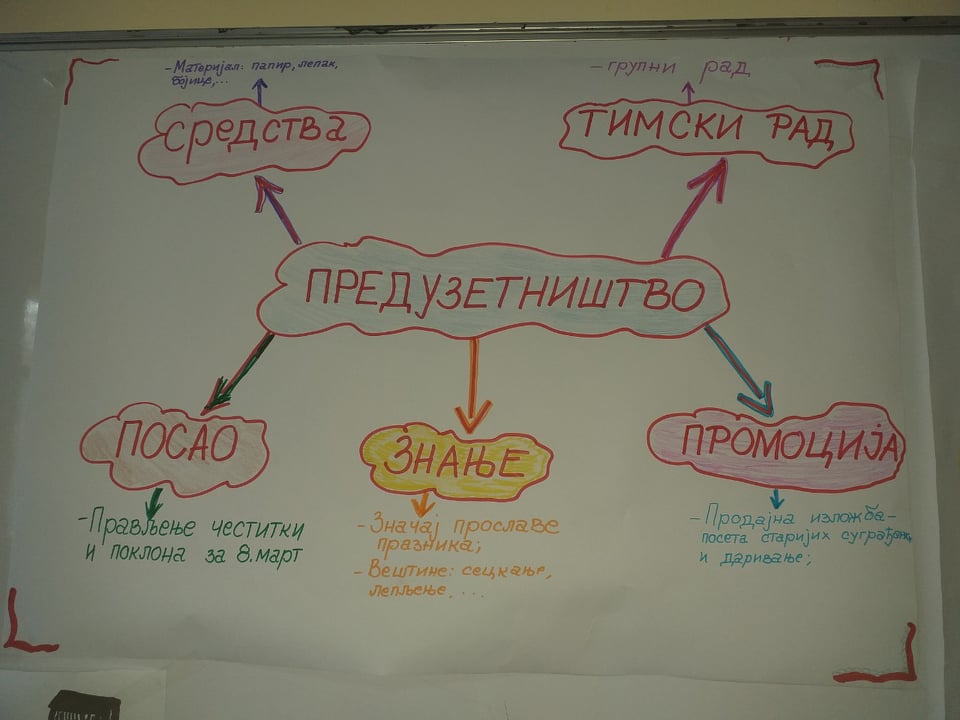 - Материјал: папир, лепак,
бојице,...
средства
- групни рад
ТИМСКИ РАД
ПРЕДУЗЕТНИШТВО
ПОСАО
- Прављење честитки
и поклона за 8. март
ЗНАЊЕ
- Значај прославе
празника;
- Вештине: сецкање,
лепљење, ...
ПРОМОЦИЈА
- Продајна изложба-
посета старијих суграђана
и даривање;